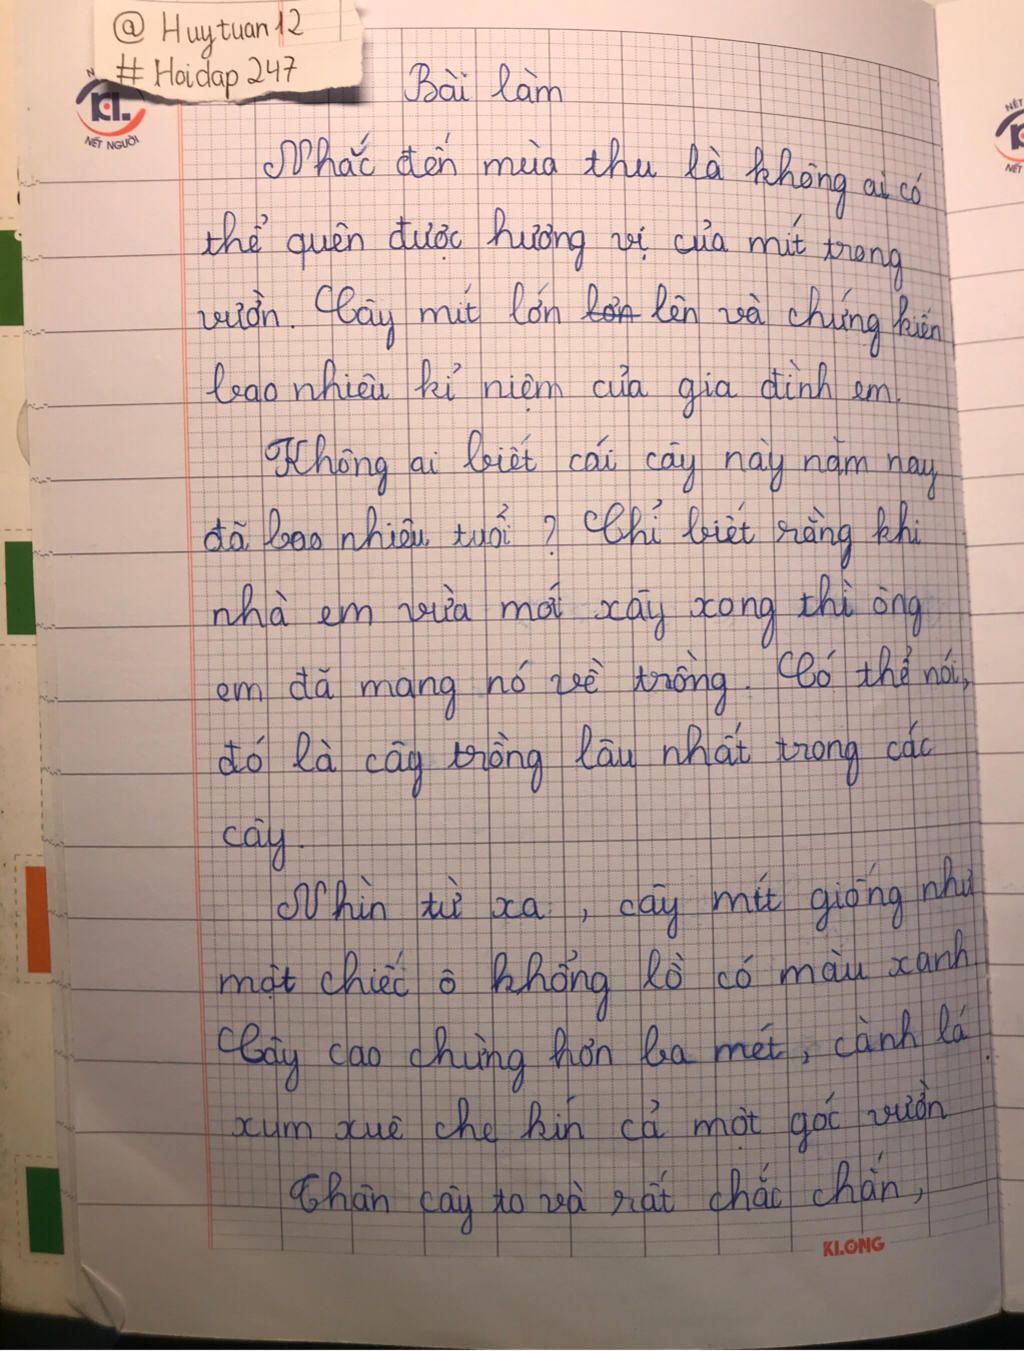 @ Huytuan12
# Hoidap 247
KL.
NÉT NGƯỜI
NÉT
NÉT
Bài làm
Nhắc đến mùa thu là không ai có
thể quên được hương vị của mít trong
vườn. Cây mít lớn lớn lên và chứng kiến
bao nhiêu kỉ niệm của gia đình em.
Không ai biết cái cây này năm nay
đã bao nhiêu tuổi ? Chỉ biết rằng khi
nhà em vừa mới xây xong thì ông
em đã mang nó về trồng. Có thể nói,
đó là cây trồng lâu nhất trong các
cây.
Nhìn từ xa, cây mít giống như
một chiếc ô khổng lồ có màu xanh
Cây cao chừng hơn ba mét, cành lá
xum xuê che kín cả một góc vườn
Thân cây to và rất chắc chắn,
KLONG